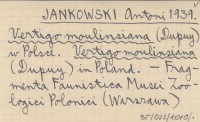 JANKOWSKI Antoni 1939.
Vertigo moulinsiana (Dupuy)
w Polsce. Vertigo moulinsiana
(Dupuy) in Poland. — Frag-
menta Faunistica Musei Zoo-
logici Polonici (Warszawa)